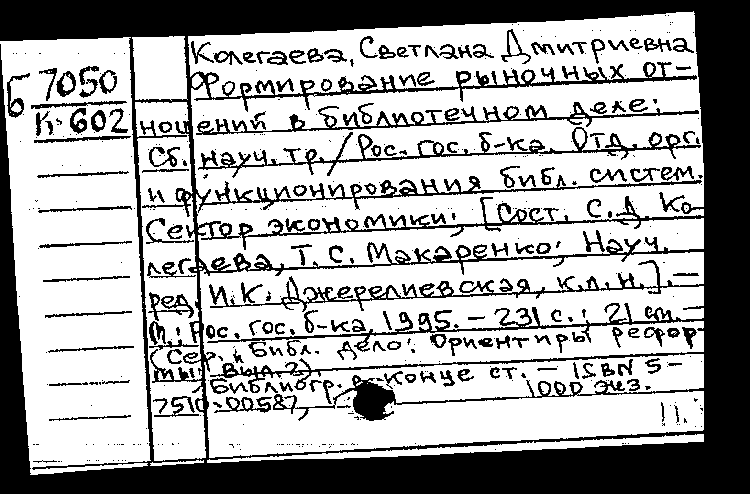 Колегаева, Светлана Дмитриевна
Б 7050
К-602
Формирование рыночных от-
ношений в библиотечном деле:
Сб. науч. тр. / Рос. гос. б-ка. Отд. орг.
и функционирования библ. систем.
Сектор экономики; [Сост. С.Д. Ко-
легаева, Т. С. Макаренко; Науч.
ред. И.К. Джерелиевская, к.п.н.]. —
М.: Рос. гос. б-ка, 1995. — 231 с.; 21 см. —
(Сер. Библ. дело: Ориентиры рефор-
мы; Вып. 2).
Библиогр. в конце ст. — ISBN 5-
7510-00587, 1000 экз.